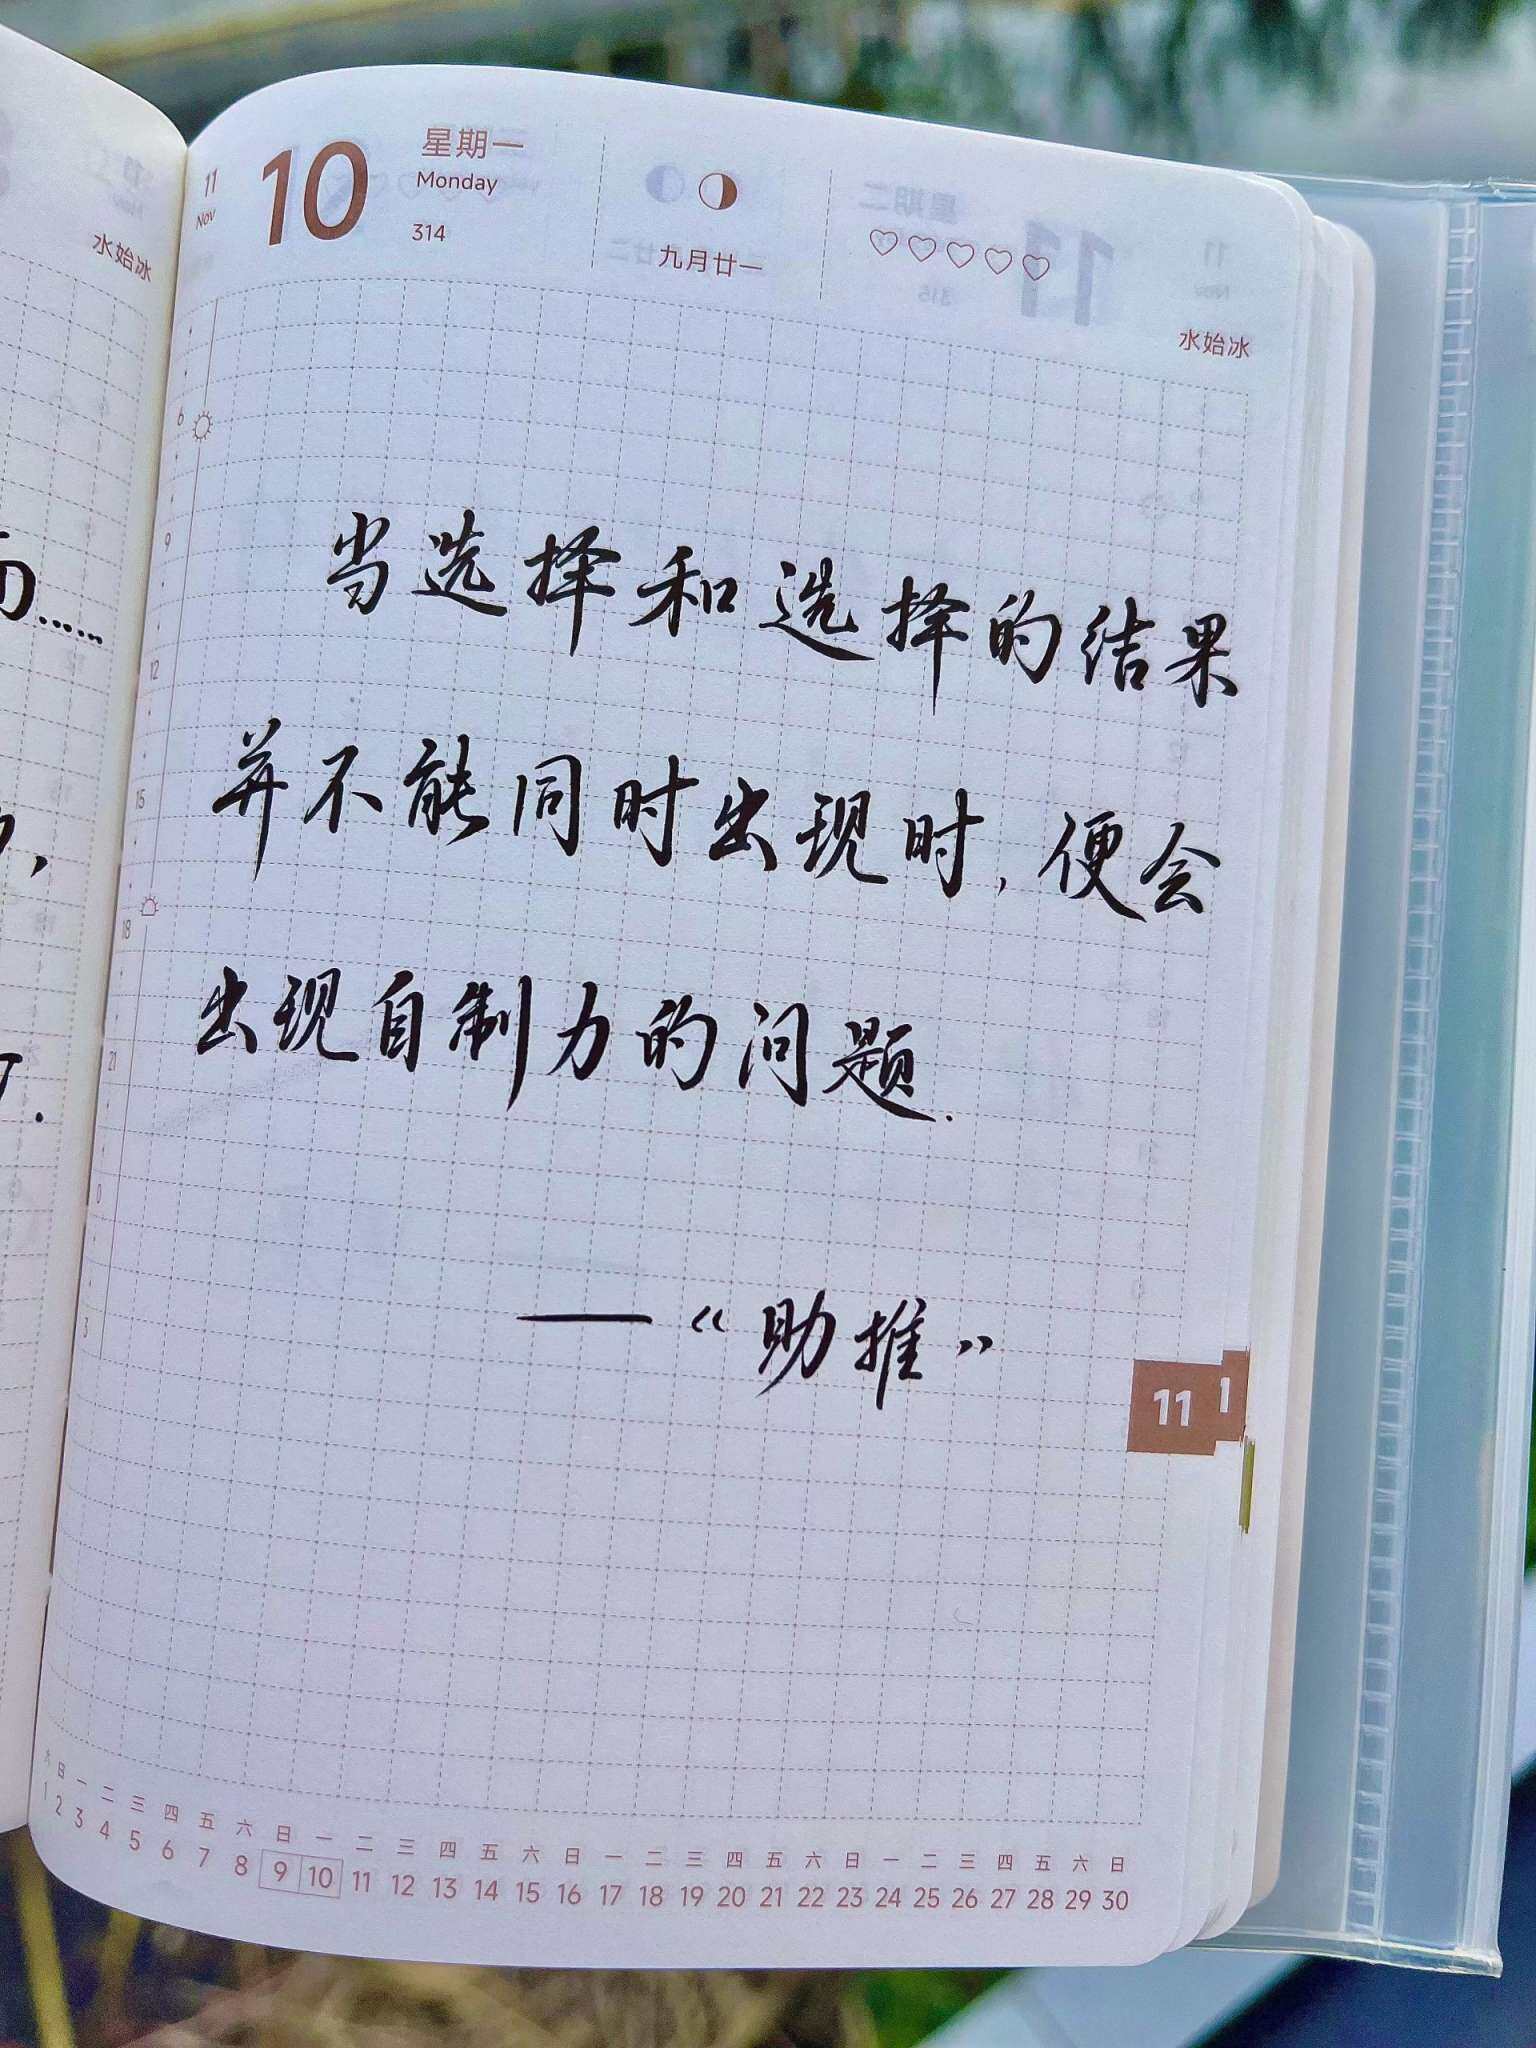 11
Nov
10
星期一
Monday
314
九月廿一
水始冰
水始冰
6
9
12
15
18
21
0
3
当选择和选择的结果
并不能同时出现时,便会
出现自制力的问题.
——《助推》
11
六 日 一 二 三 四 五 六 日 一 二 三 四 五 六 日 一 二 三 四 五 六 日 一 二 三 四 五 六 日
1 2 3 4 5 6 7 8 9 10 11 12 13 14 15 16 17 18 19 20 21 22 23 24 25 26 27 28 29 30